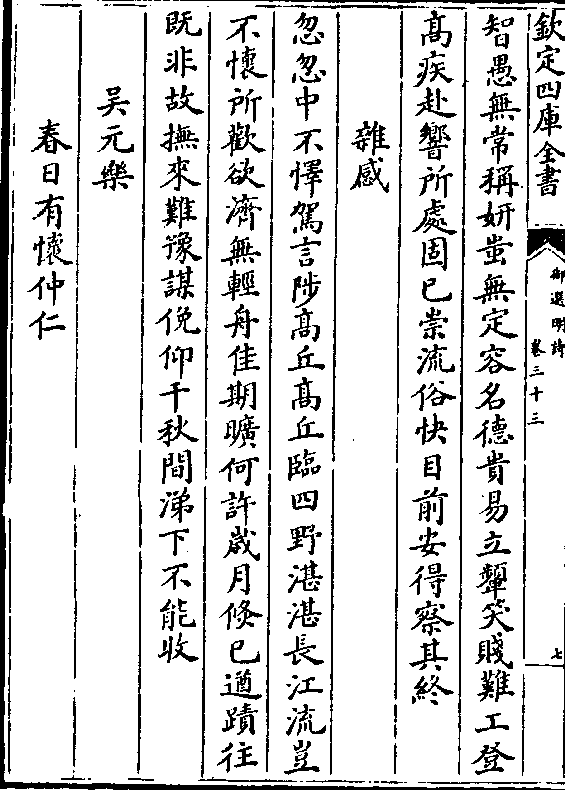 欽定四庫全書
御選明詩
卷三十三
七
智愚無常稱妍蚩無定容名德貴易立顰笑賤難工登
高疾赴響所處固已崇流俗快目前安得察其終
雜感
忽忽中不懌駕言陟高丘高丘臨四野湛湛長江流豈
不懷所歡欲濟無輕舟佳期曠何許歲月倏已遒蹟往
既非故撫來難豫謀俛仰千秋間涕下不能收
吴元樂
春日有懷仲仁